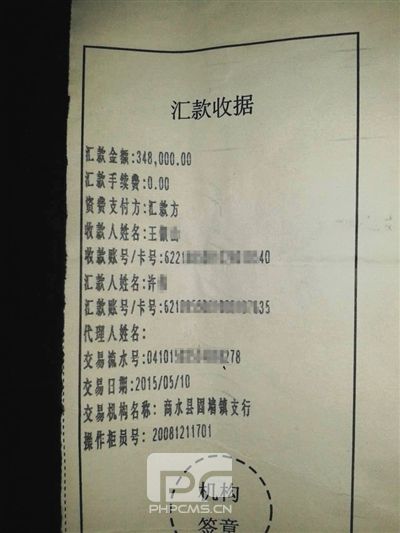 汇款收据
汇款金额:348,000.00
汇款手续费:0.00
资费支付方:汇款方
收款人姓名:王
收款账号/卡号:6221 40
汇款人姓名:许
汇款账号/卡号:621 35
代理人姓名:
交易流水号:04101 278
交易日期:2015/05/10
交易机构名称: 商水县固墙镇支行
操作柜员号: 20081211701
机构
签章
PHPCMS.CN